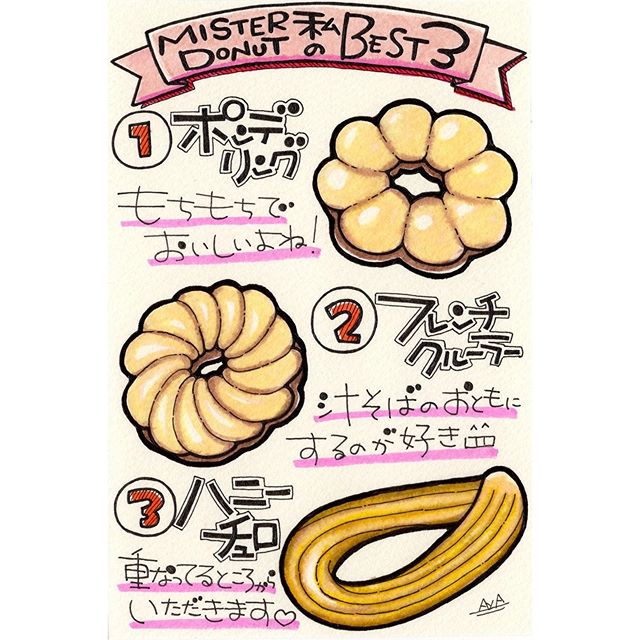 MISTER DONUT 私の BEST 3
1 ポンデリング
もちもちで
おいしいよね!
2 フレンチクルーラー
汁そばのおともに
するのが好き
3 ハニーチュロ
重なってるところから
いただきます♡
AVA